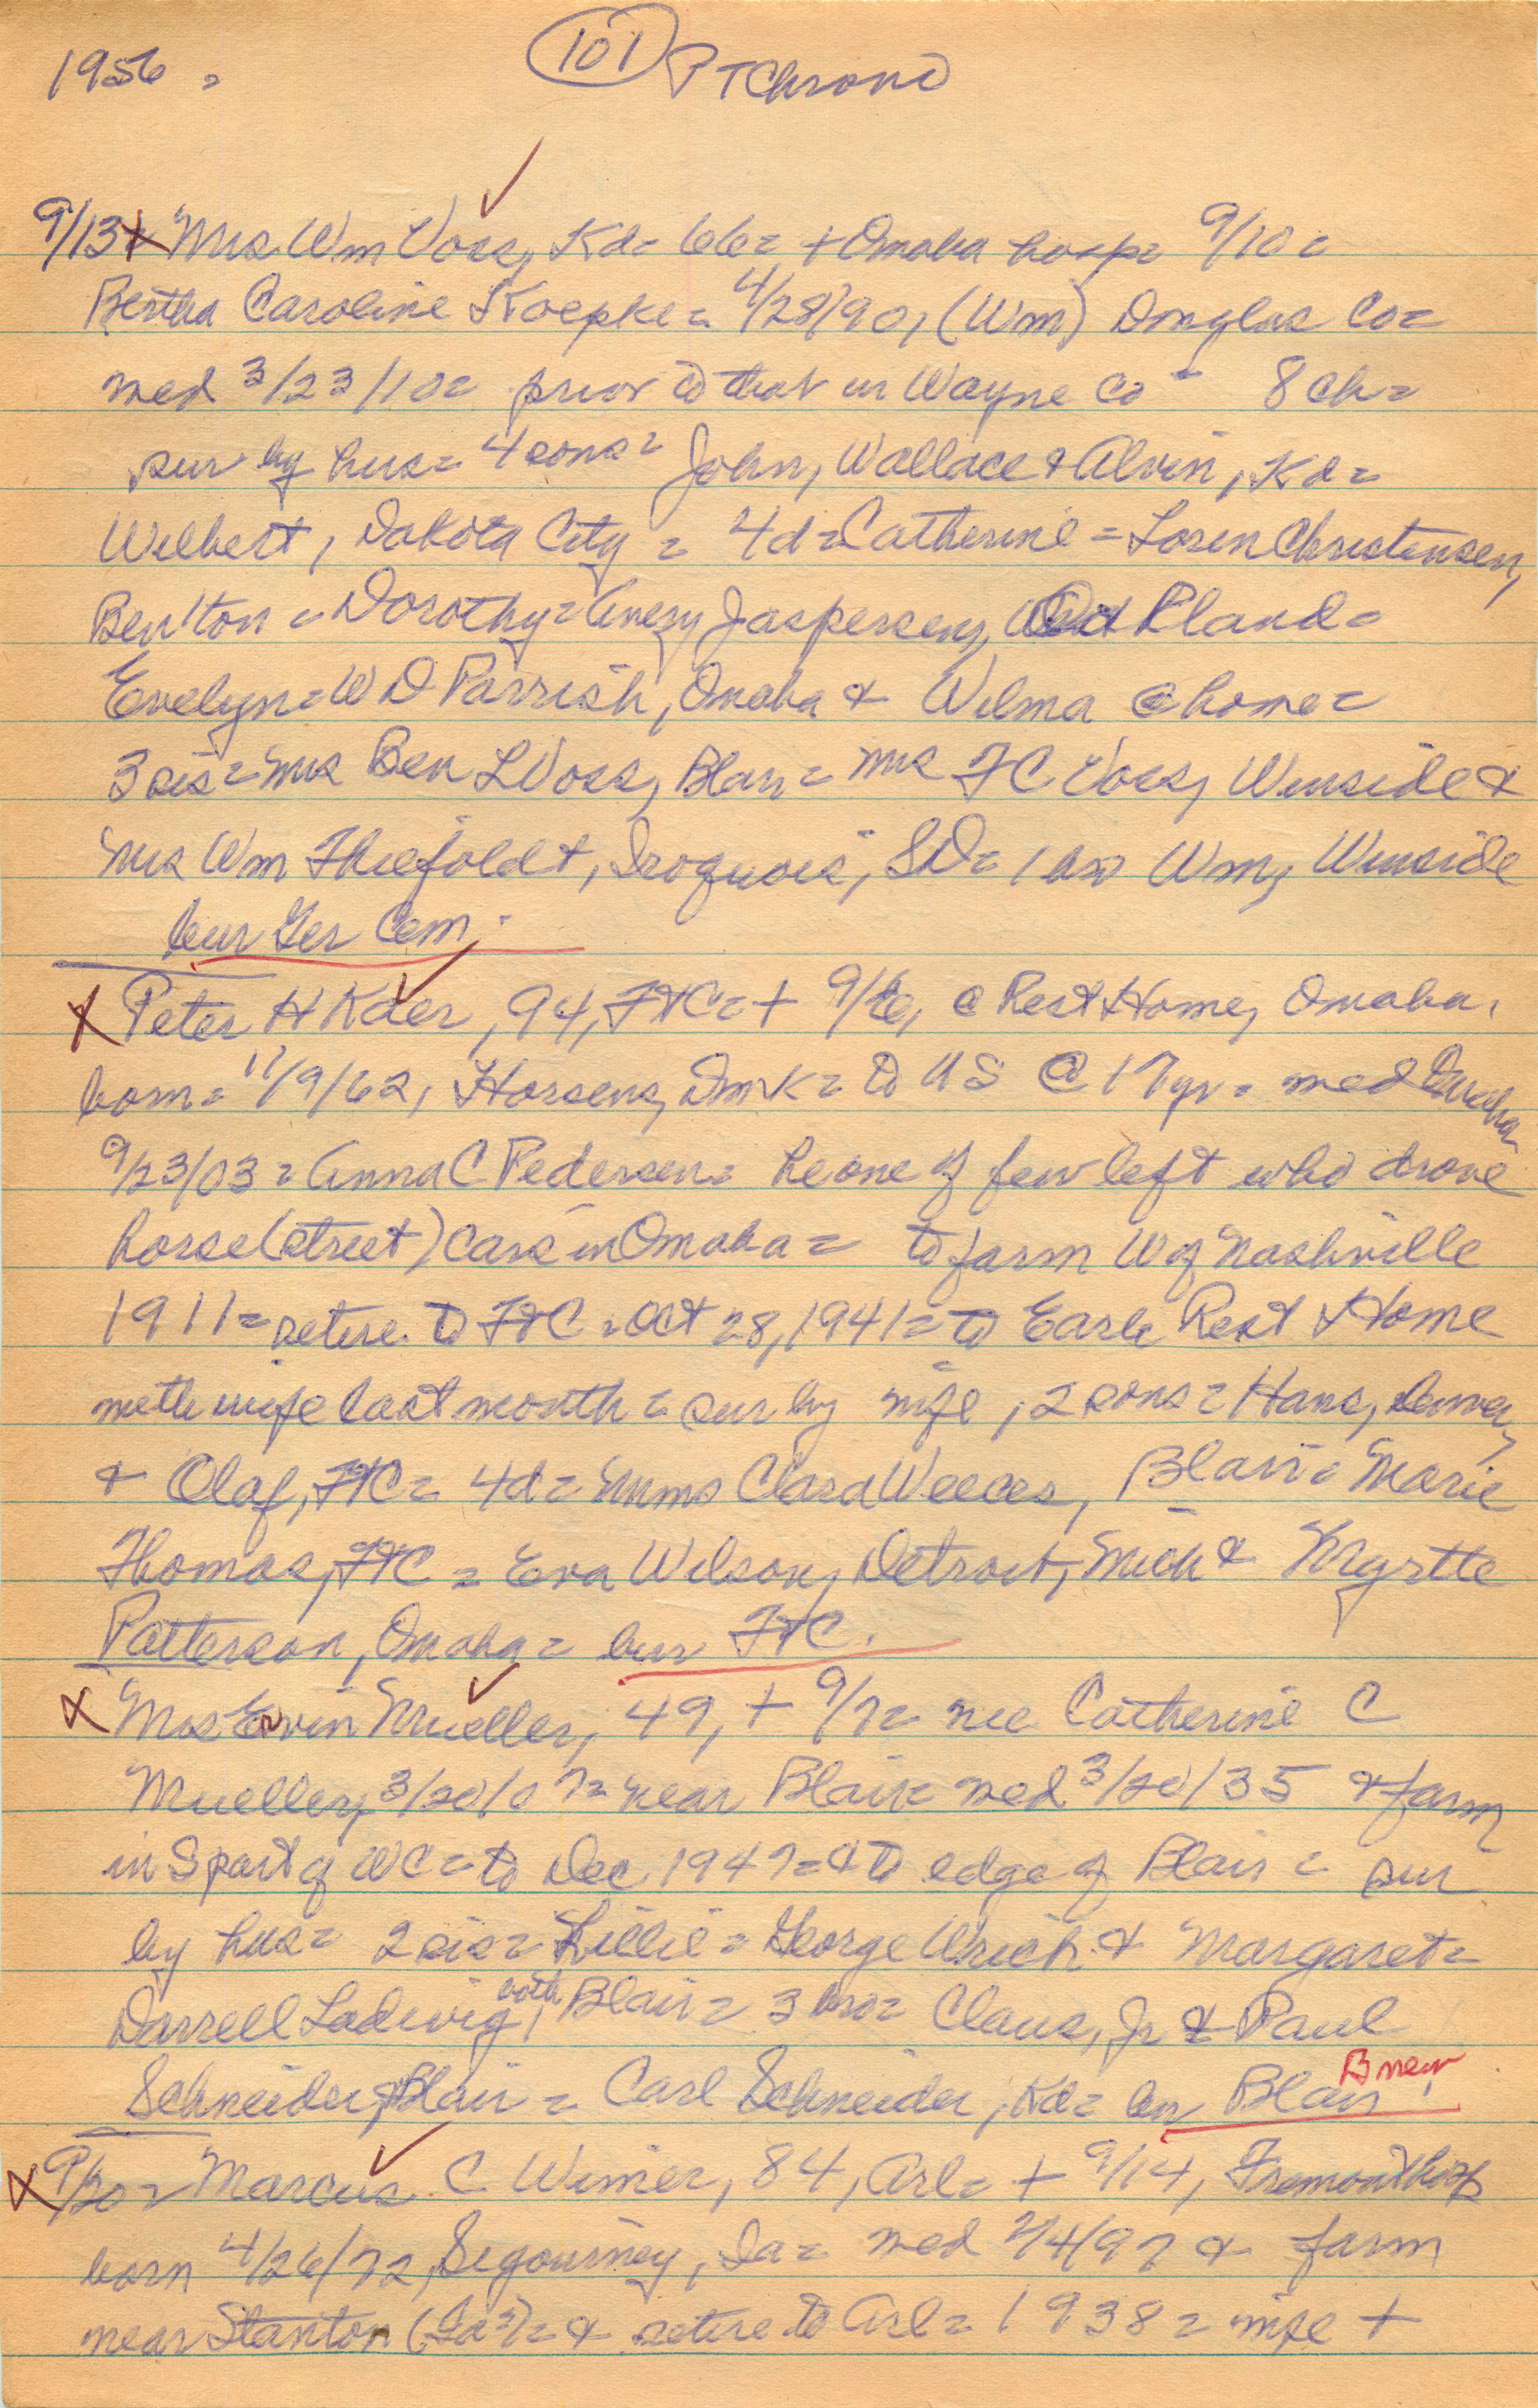 1956 =
101 PT Chrono
9/13 x Mrs Wm Voss, Kd = 66 = + Omaha hosp = 9/10 =
Bertha Caroline Koepke = 4/28/90, (Wm) Douglas Co =
med 3/23/10 = prior to that in Wayne Co = 8 ch =
sur by hus = 4 sons = John, Wallace & Alvin, Kd =
Wilbert, Dakota City = 4 d = Catherine = Loren Christensen,
Ben'ton = Dorothy = Avery Jaspersen, Pland =
Evelyn = W D Parrish, Omaha & Wilma @ home =
3 sis = Mrs Ben L Voss, Blair = Mrs F C Voss, Winside &
Mrs Wm Thiefoldt, Iroquois, SD = 1 bro Wm, Winside
bur Ger Cem.
x Peter H Kaer, 94, FtC = + 9/6, @ Rest Home, Omaha,
born = 11/9/62, Horsens, Dmk = to US @ 17 yr = med Omaha
9/23/03 = Anna C Pedersen = he one of few left who drove
horse (street) cars in Omaha = to farm W of Nashville
1911 = retire to FtC = Oct 28, 1941 = to Earle Rest Home
with wife last month = sur by wife, 2 sons = Hans, Denver,
& Olaf, FtC = 4 d = Mmes Clara Weeces, Blair = Marie
Thomas, FtC = Eva Wilson, Detroit, Mich & Myrtle
Patterson, Omaha = bur FtC.
x Mrs Ervin Mueller, 49, + 9/7 = nee Catherine C
Mueller, 3/20/07 = near Blair = med 3/20/35 & farm
in S part of WC = to Dec 1947 = & to edge of Blair = sur
by hus = 2 sis = Lillie = George Wrich & Margaret =
Darrell Ladwig, both Blair = 3 bro = Claus, Jr & Paul
Schneider, Blair = Carl Schneider, Kd = bur Blair B new
x 9/20 = Marcus C Wimer, 84, Arl = + 9/14, Fremont hosp
born 4/26/72, Segourney, Ia = med 2/4/97 & farm
near Stanton (Ia?) = & retire to Arl = 1938 = wife +